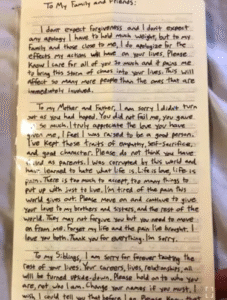 To My Family and Friends:
I dont expect forgiveness and I don't expect
any apology I have to hold much weight, but to my
family and those close to me, I do apologize for the
effects my actions will have on your lives. Please
Know I care for all of you so much and it pains me
to bring this storm of chaos into your lives. This will
affect so many more people than the ones that are
immediately involved.
To my Mother and Father, I am sorry I didn't turn
out as you had hoped. You did not fail me, you gave
so much. I truly appreciate the love you have
given me, I feel I was raised to be a good person.
I've kept those traits of empathy, self-sacrifice,
and good character. Please do not think you have
as parents. I was corrupted by this world and
have learned to hate what life is. Life is love, life is
pain. There is too much to accept, too many things to
put up with just to live. I'm tired of the pain this
world gives out. Please move on and continue to give
your love to my brothers and sisters, and the rest of the
world. They may not forgive you but you need to move
on from me. Forget my life and the pain I've brought. I
love you both. Thank you for everything. I'm sorry.
To my Siblings, I am sorry for forever tainting the
rest of your lives. Your careers, lives, relationships, all
will be turned upside-down. Please hold on to who you
are, not who I am. Change your names if you must. I
wish I could tell you that before I am